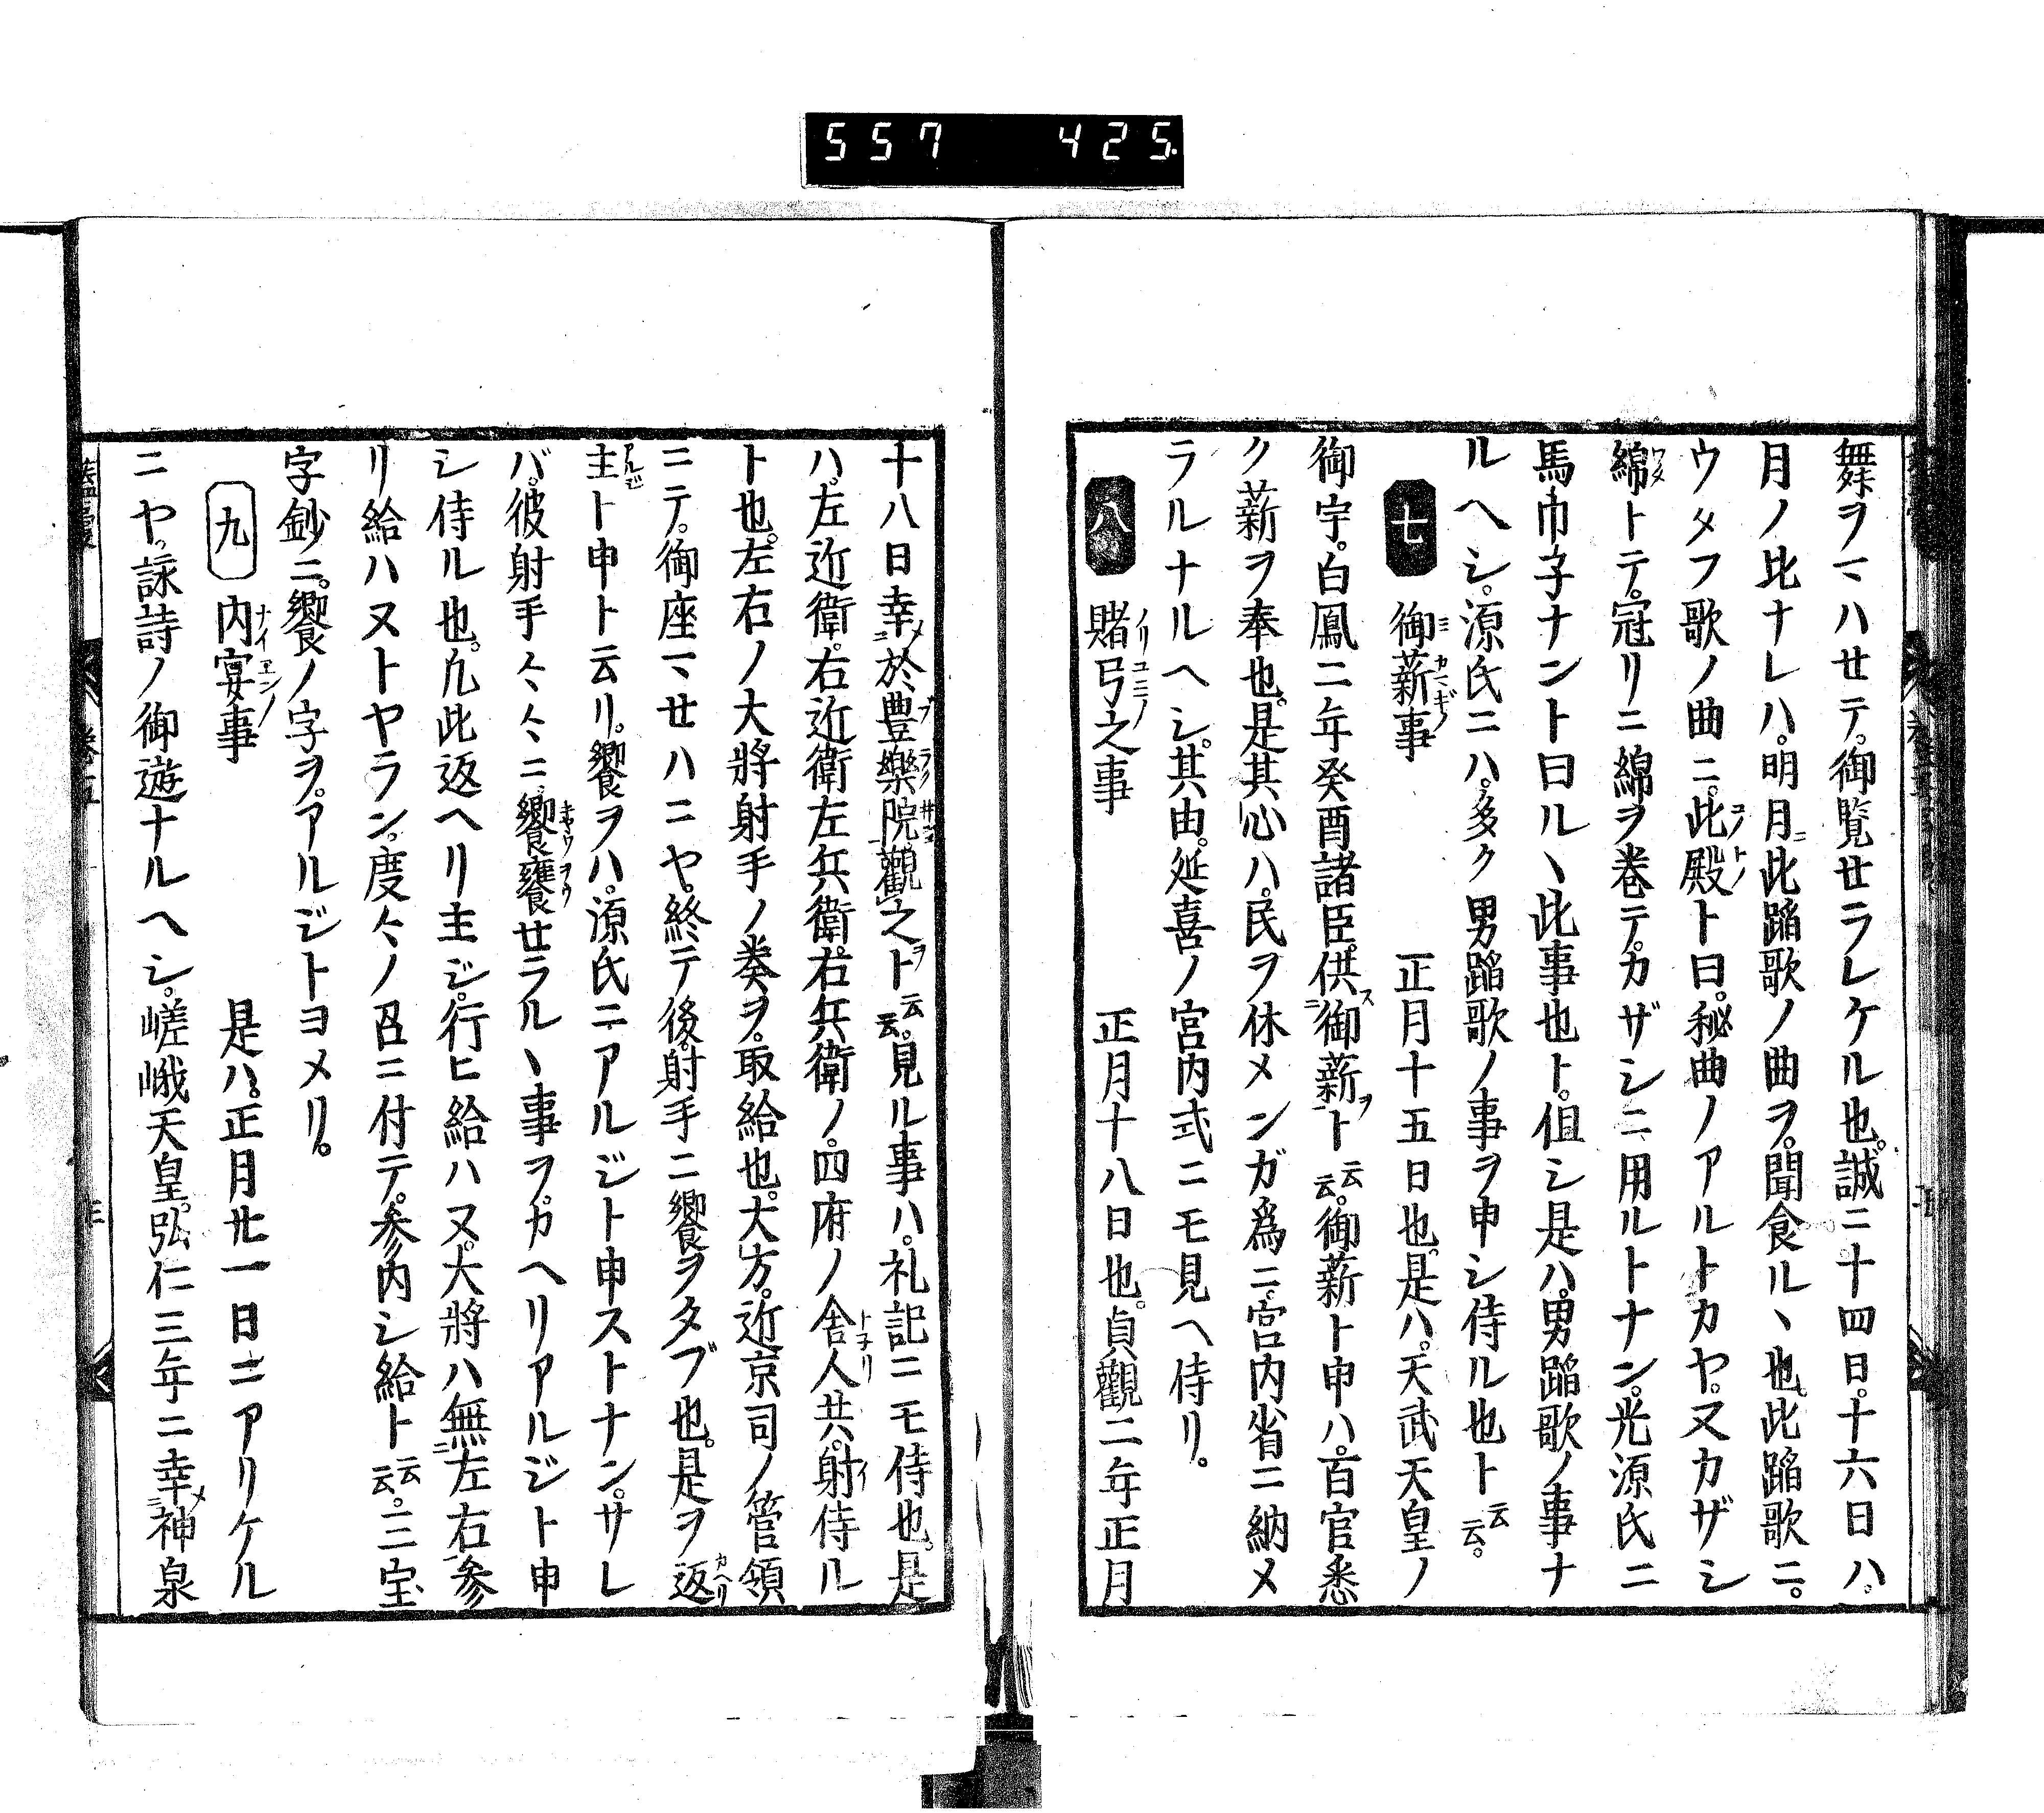 557 425
舞ヲマハせテ。御覧せラレケル也。誠ニ十四日。十六日ハ。
月ノ比ナレハ。明月ニ此蹈歌ノ曲ヲ。聞食ルヽ也。此蹈歌ニ。
ウタフ歌ノ曲ニ。此殿ト曰。秘曲ノアルトカヤ。又カザシ
綿トテ。冠リニ綿ヲ巻テ。カザシニ用ルトナン。光源氏ニ
馬巾子ナント曰ルヽ此事也ト。但シ是ハ。男蹈歌ノ事ナ
ルヘシ。源氏ニハ。多ク男蹈歌ノ事ヲ申シ侍ル也ト云云。
七 御薪事 正月十五日也。是ハ。天武天皇ノ
御宇。白鳳二年癸酉諸臣。供御薪ト云云。御薪ト申ハ。百官悉
ク薪ヲ奉也。是其心ハ。民ヲ休メンガ爲ニ。宮内省ニ納メ
ラルナルヘシ。其由。延喜ノ宮内式ニモ見ヘ侍リ。
八 賭弓之事 正月十八日也。貞觀二年正月
十八日幸於豊樂院觀之ト云云。見ル事ハ。礼記ニモ侍也。是
ハ。左近衛。右近衛左兵衛。右兵衛ノ。四府ノ舎人共。射侍ル
ト也。左右ノ大將射手ノ奏ヲ。取給也。大方。近京司ノ管領
ニテ。御座マせハニヤ。終テ後。射手ニ饗ヲタブ也。是ヲ返
主ト申ト云リ。饗ヲハ。源氏ニアルジト申ストナン。サレ
バ。彼射手〻〻ニ。饗饔せラルヽ事ヲ。カヘリアルジト申
シ侍ル也。凢此返ヘリ主ジ。行ヒ給ハヌ。大將ハ無左右参
リ給ハヌトヤラン。度〻ノ召ニ付テ。参内シ給ト云云。三宝
字鈔ニ。饗ノ字ヲ。アルジトヨメリ。
九 内宴事 是ハ。正月廿一日ニアリケル
ニヤ。詠詩ノ御遊ナルヘシ。嵯峨天皇。弘仁三年ニ幸神泉